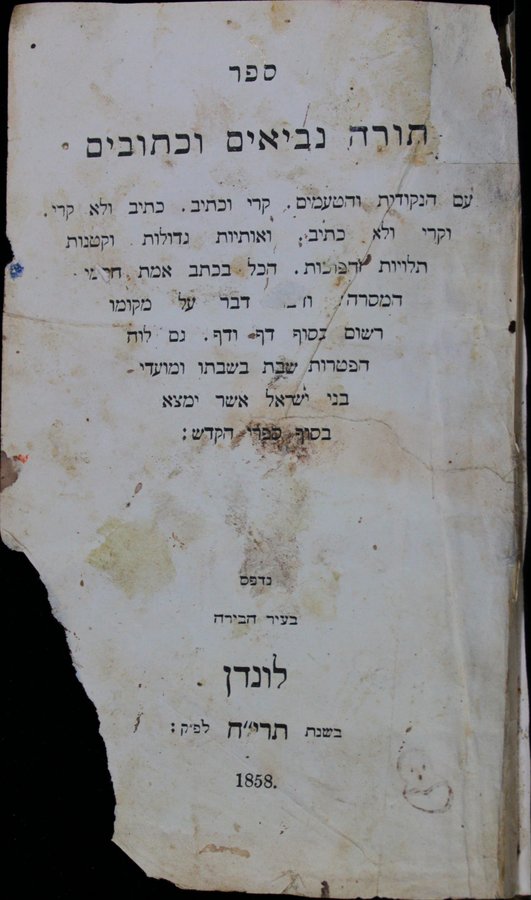 ספר
תורה נביאים וכתובים
עם הנקודית והטעמים. קרי וכתיב. כתיב ולא קרי.
וקרי ולא כתיב: ואותיות גדולות וקטנות
תלויות והפוכות. הכל בכתב אמת
המסרה דבר על מקומו
רשום בסוף דף ודף. גם לוח
הפטרות שבת בשבתו ומועדי
בני ישראל אשר ימצא
בסוף ספרי הקדש:
נדפס
בעיר הבירה
לונדן
בשנת תרי״ח לפ״ק:
1858.